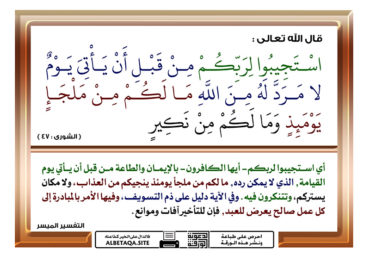 قال الله تعالى :
اسْتَجِيبُوا لِرَبِّكُمْ مِنْ قَبْلِ أَنْ يَأْتِيَ يَوْمٌ
لَا مَرَدَّ لَهُ مِنَ اللَّهِ مَا لَكُمْ مِنْ مَلْجَإٍ
يَوْمَئِذٍ وَمَا لَكُمْ مِنْ نَكِيرٍ
( الشورى : ٤٧ )
أي استجيبوا لربكم- أيها الكافرون- بالإيمان والطاعة من قبل أن يأتي يوم
القيامة , الذي لا يمكن رده , ما لكم من ملجأ يومئذ ينجيكم من العذاب , ولا مكان
يستركم , وتتنكرون فيه . وفي الآية دليل على ذم التسويف , وفيها الأمر بالمبادرة إلى
كل عمل صالح يعرض للعبد , فإن للتأخير آفات وموانع .
التفسير الميسر
احرص على طباعة
ونشر هذه الورقة
ALBETAQA.SITE